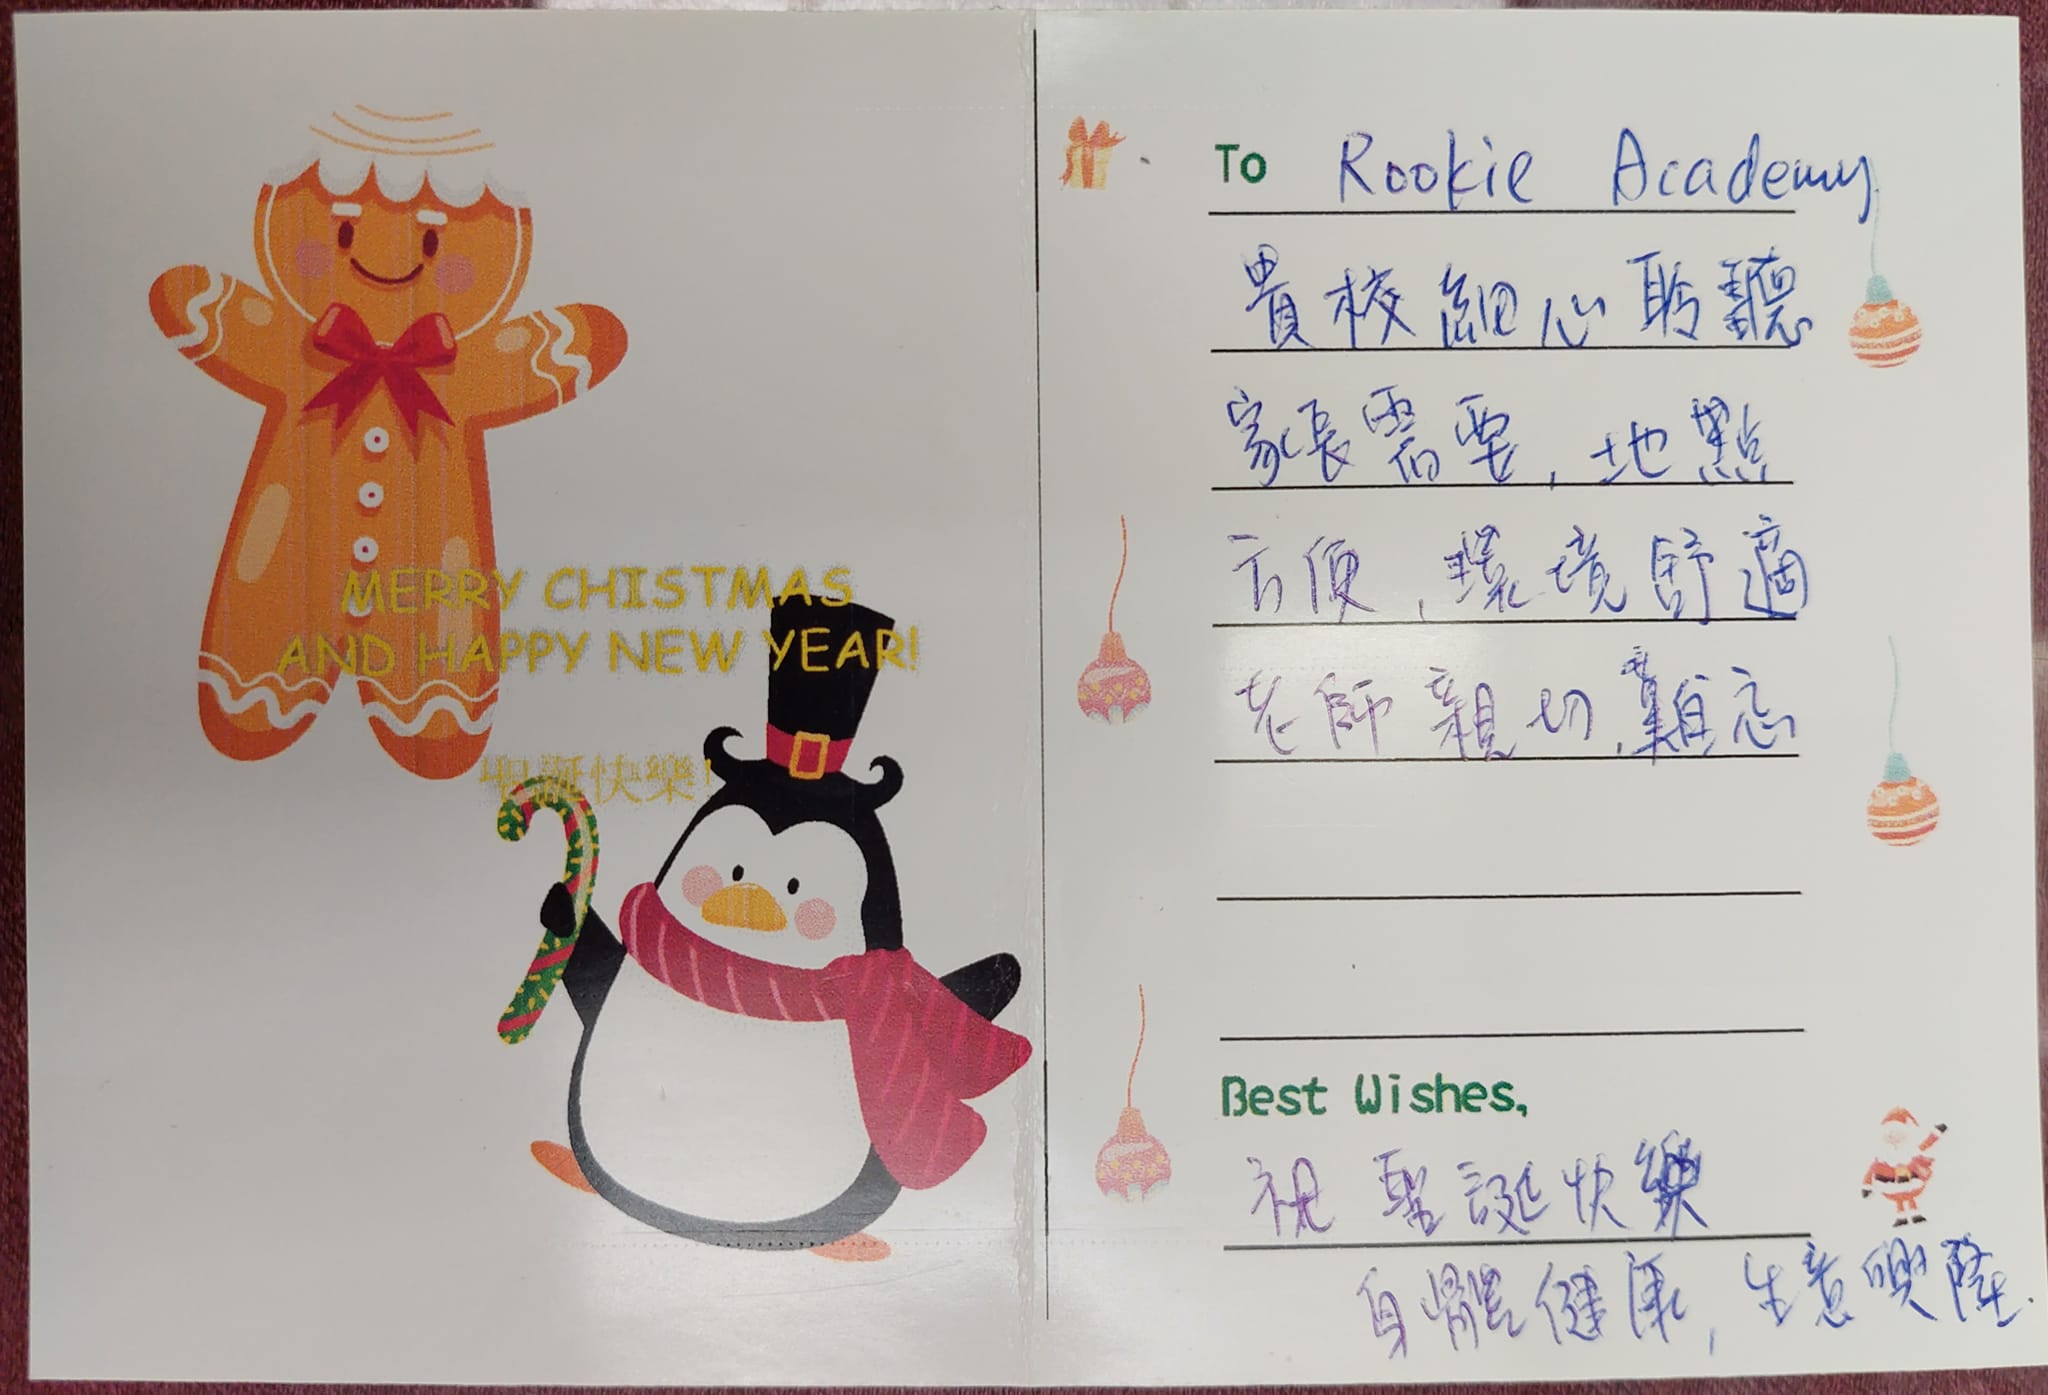 MERRY CHISTMAS
AND HAPPY NEW YEAR!
聖誕快樂!
To Rookie Academy
貴校細心聆聽
家長需要,地點
方便,環境舒適
老師親切,難忘
Best Wishes,
祝聖誕快樂
身體健康,生意興隆.